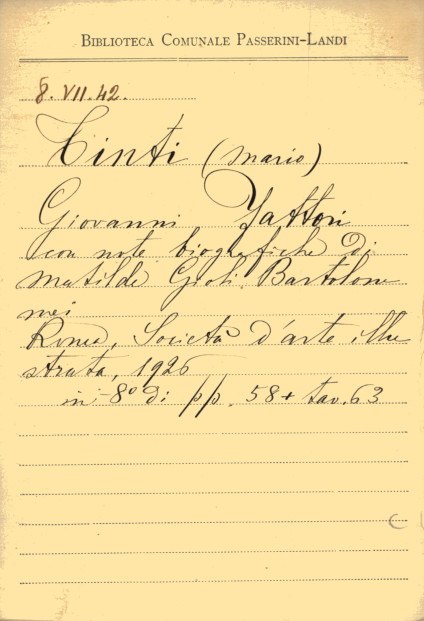 BIBLIOTECA COMUNALE PASSERINI-LANDI
8. VII. 42.
Tinti (Mario)
Giovanni Fattori
con note biografiche di
Matilde Gioli Bartolom
mei
Roma, Società d'arte illu
strata, 1926
in-8º di pp. 58 + tav. 63